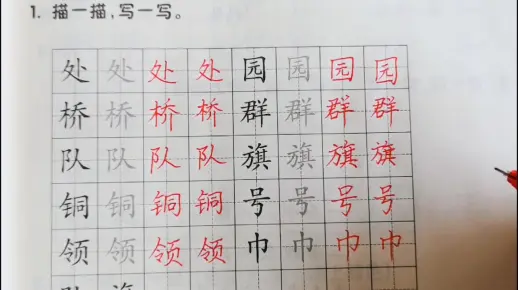 1. 描一描,写一写。
处处处处园园园园
桥桥桥桥群群群群
队队队队旗旗旗旗
铜铜铜铜号号号号
领领领领巾巾巾巾